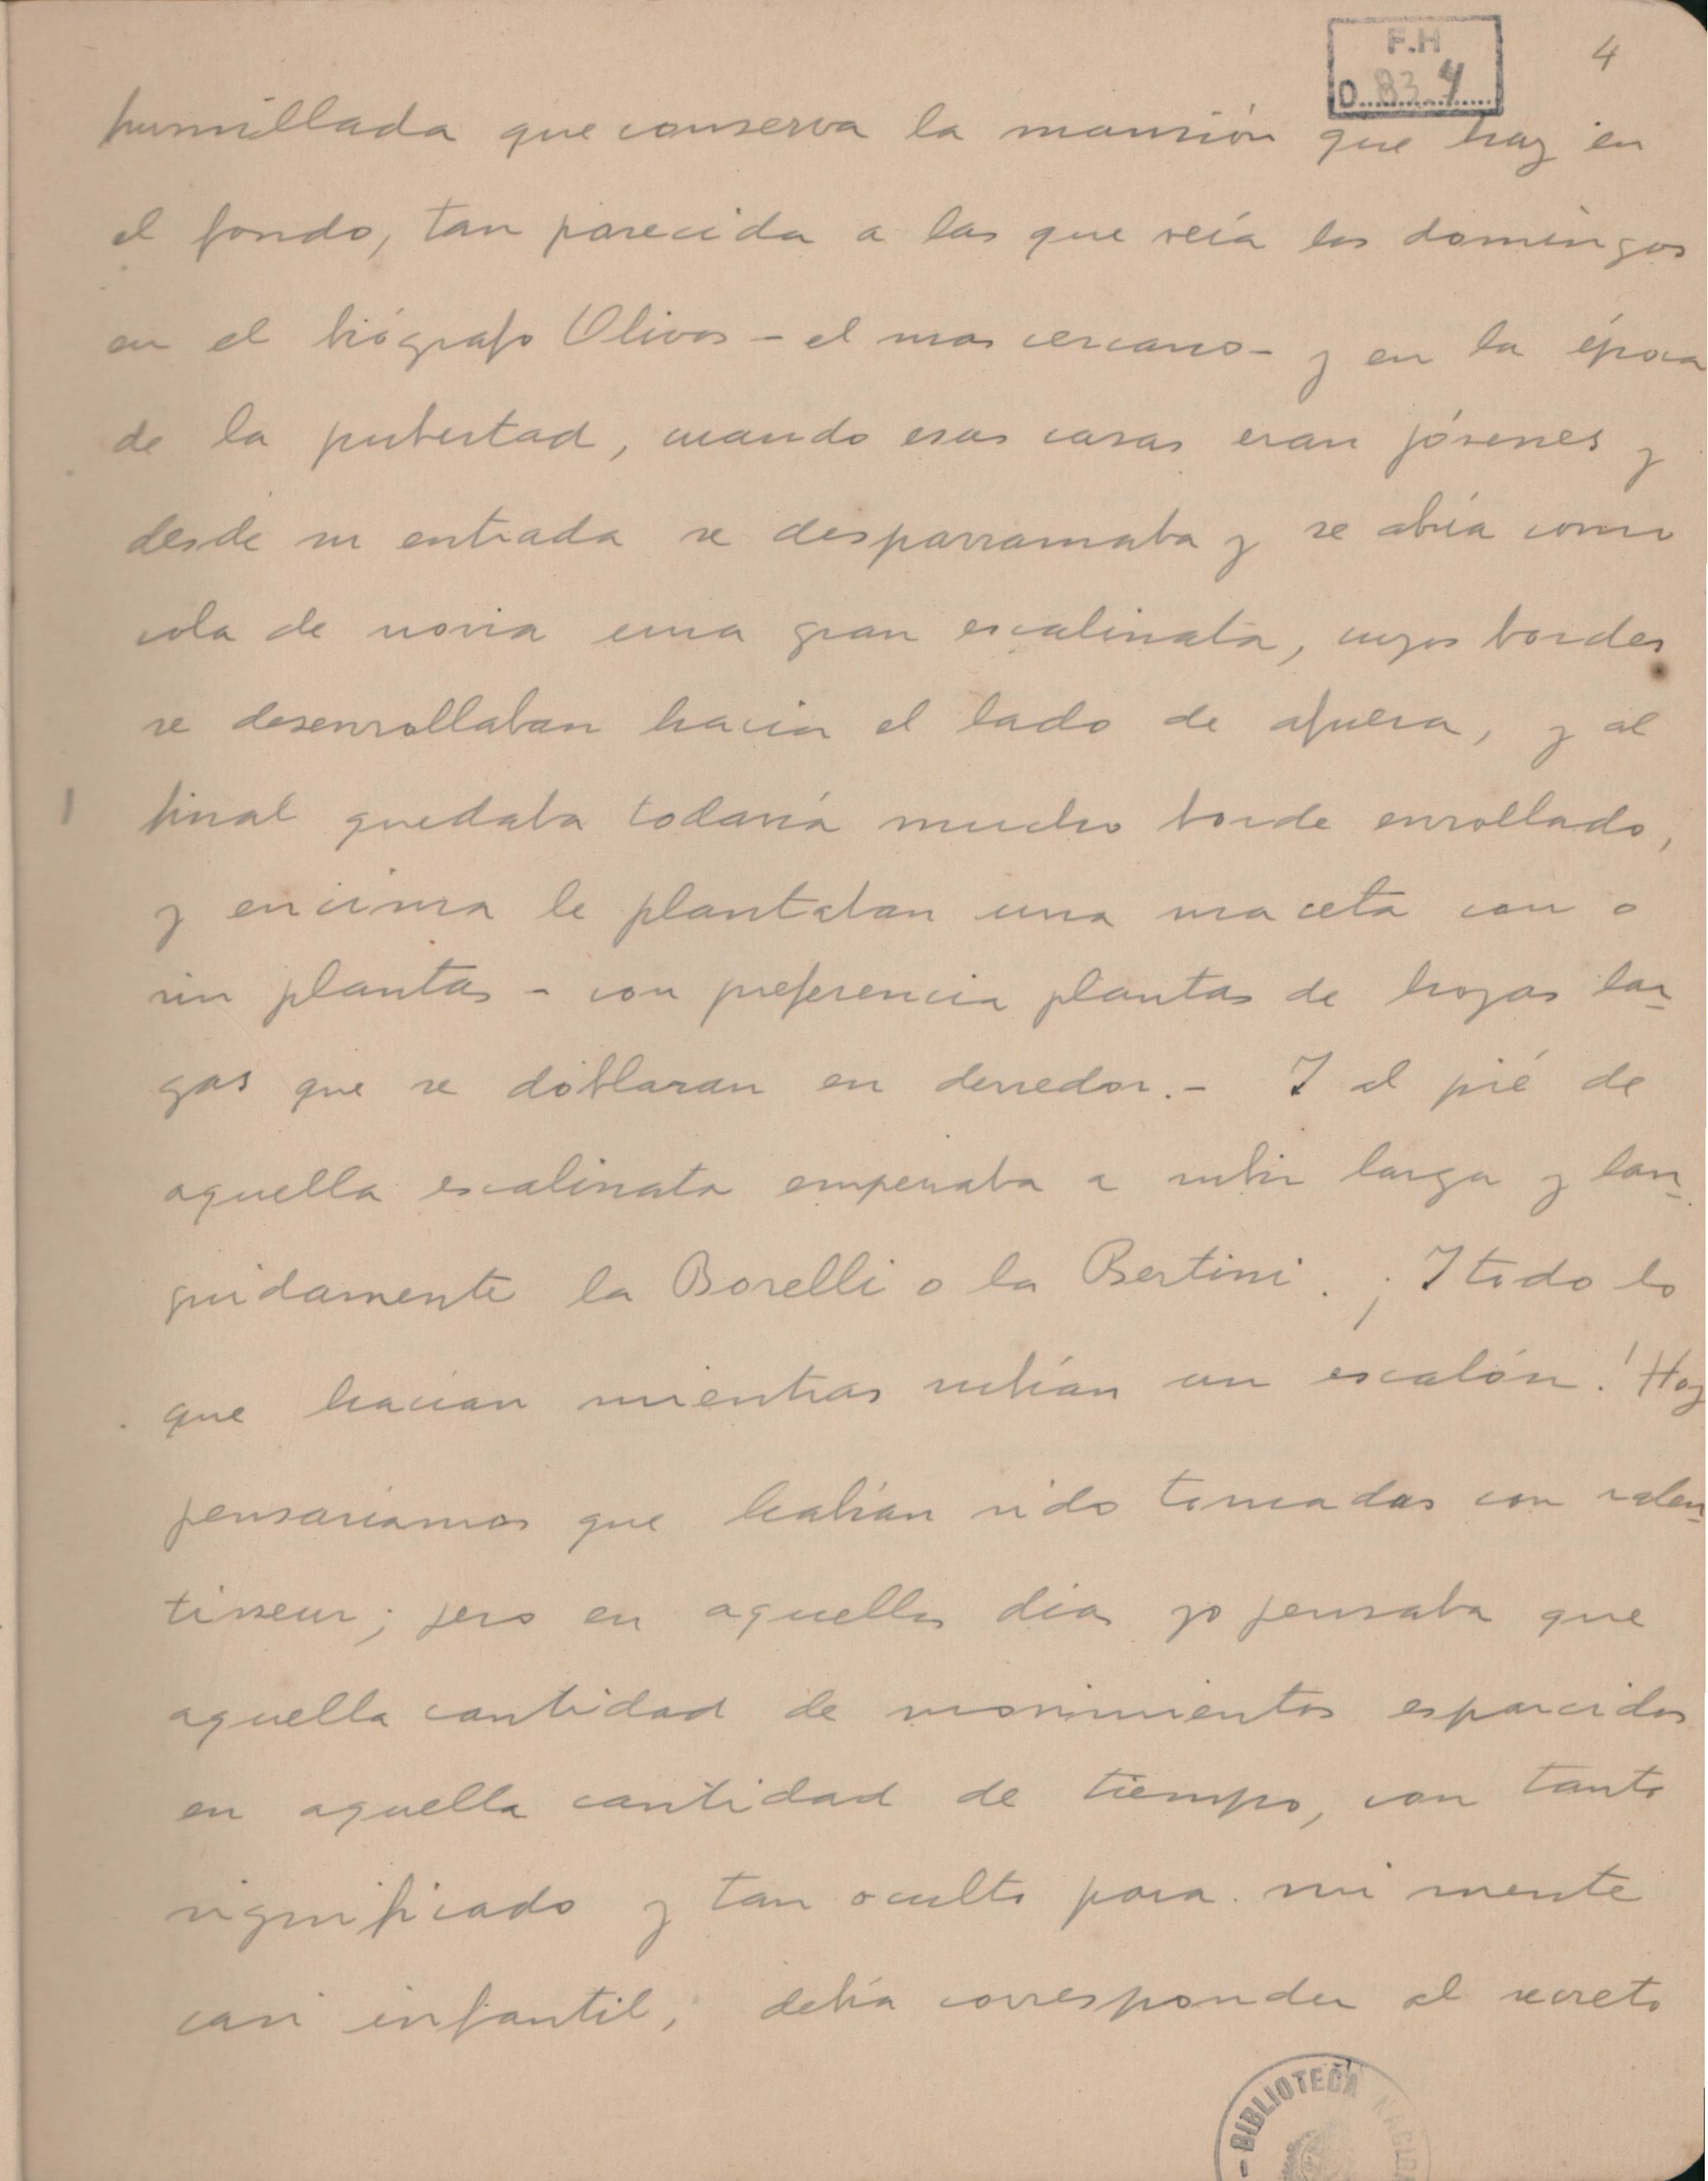 F.H
4
D 83 4
humillada que conserva la mansión que hay en
el fondo, tan parecida a las que veía los domingos
en el biógrafo Olivos - el mas cercano - y en la época
de la pubertad, cuando esas casas eran jóvenes y
desde su entrada se desparramaba y se abría como
cola de novia una gran escalinata, cuyos bordes
se desenrollaban hacia el lado de afuera, y al
final quedaba todavía mucho borde enrollado,
y encima le plantaban una maceta con o
sin plantas - con preferencia plantas de hojas lar-
gas que se doblaran en derredor. - Y al pié de
aquella escalinata empezaba a subir larga y lan-
guidamente la Borelli o la Bertini. ¡Y todo lo
que hacían mientras subían un escalón! Hoy
pensaríamos que habían sido tomadas con ralen-
tisseur; pero en aquellos días yo pensaba que
aquella cantidad de movimientos esparcidos
en aquella cantidad de tiempo, con tanto
significado y tan oculto para mi mente
casi infantil, debía corresponder al secreto
- BIBLIOTECA NACIONAL